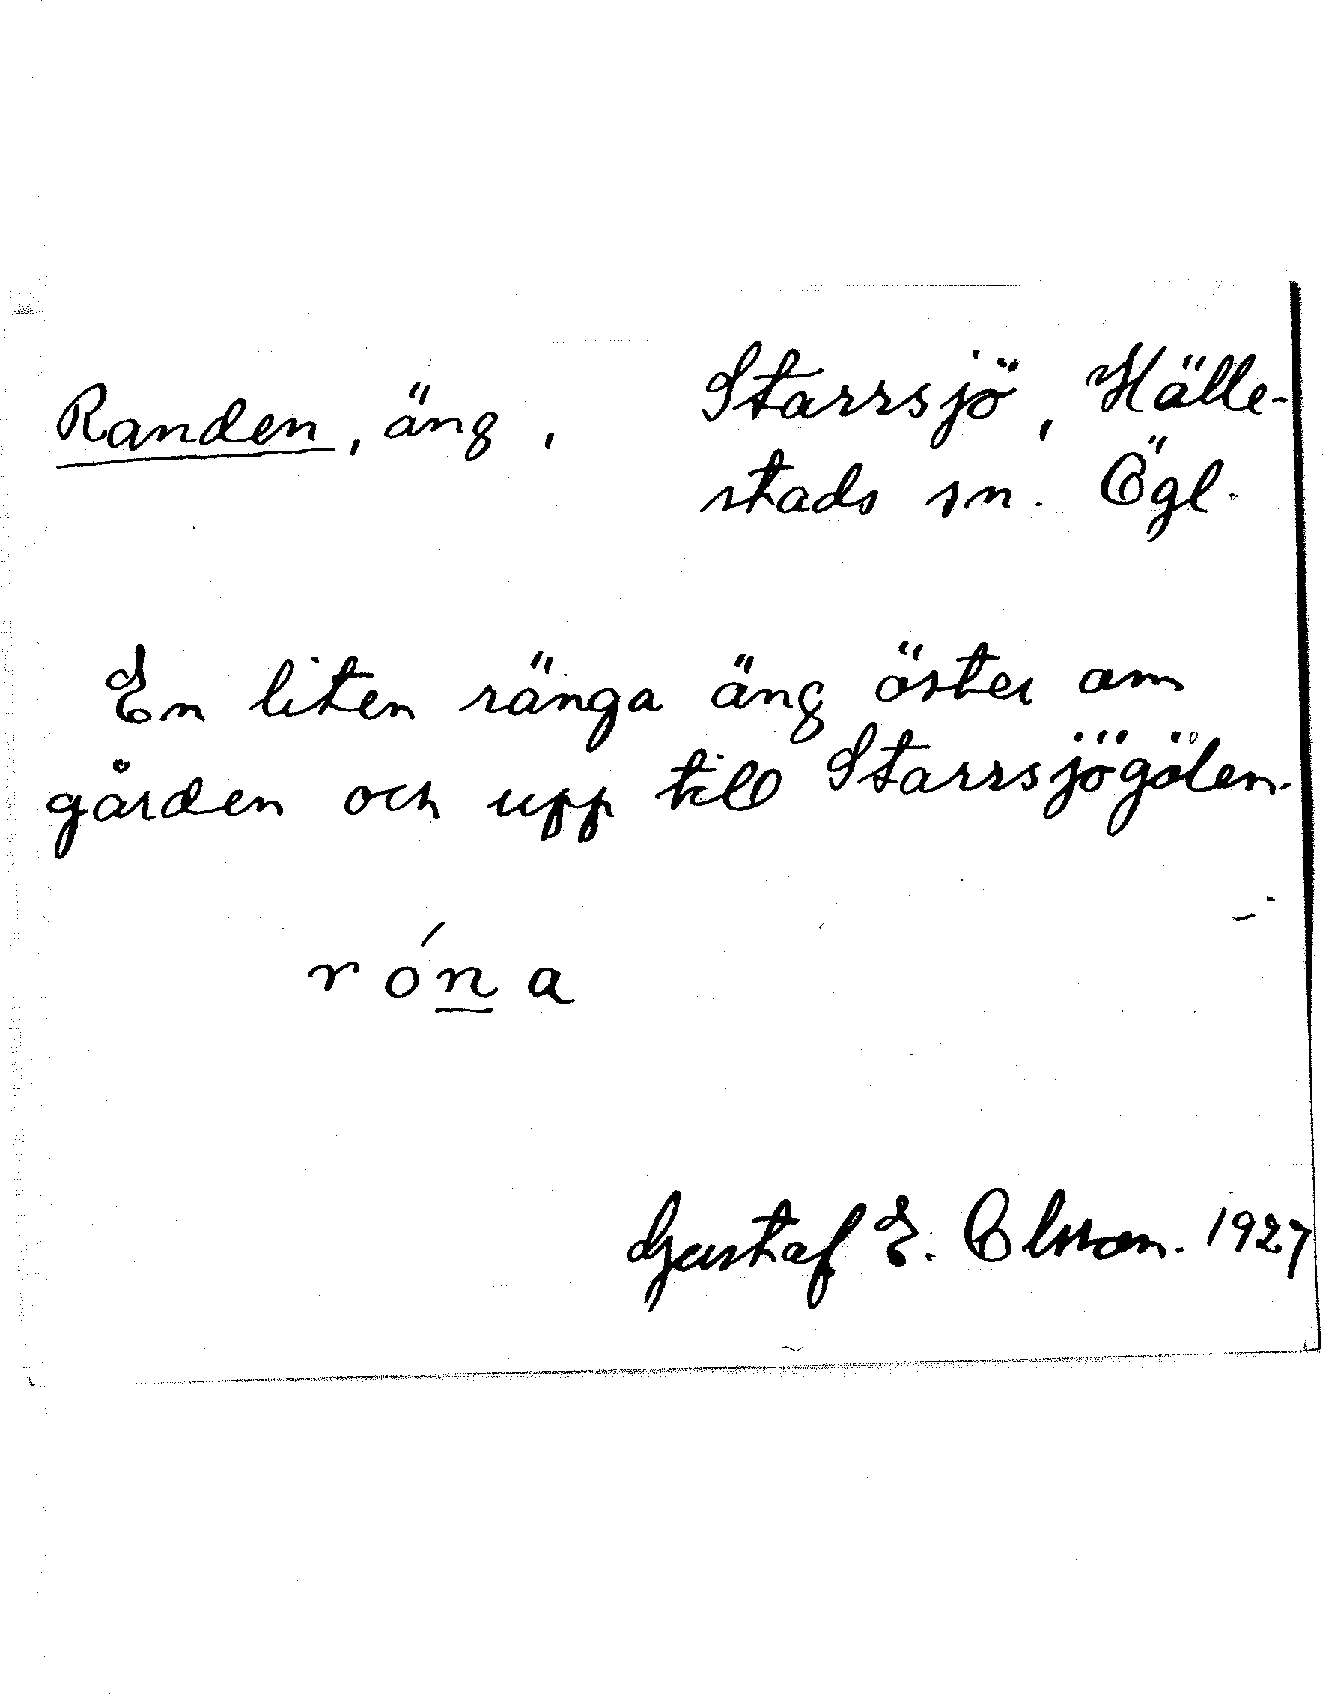 Randen, äng,
Starrsjö, Hälle-
stads sn. Ögl.
En liten ränga äng öster om
gården och upp till Starrsjögölen.
róna
Gustaf E. Olsson. 1927